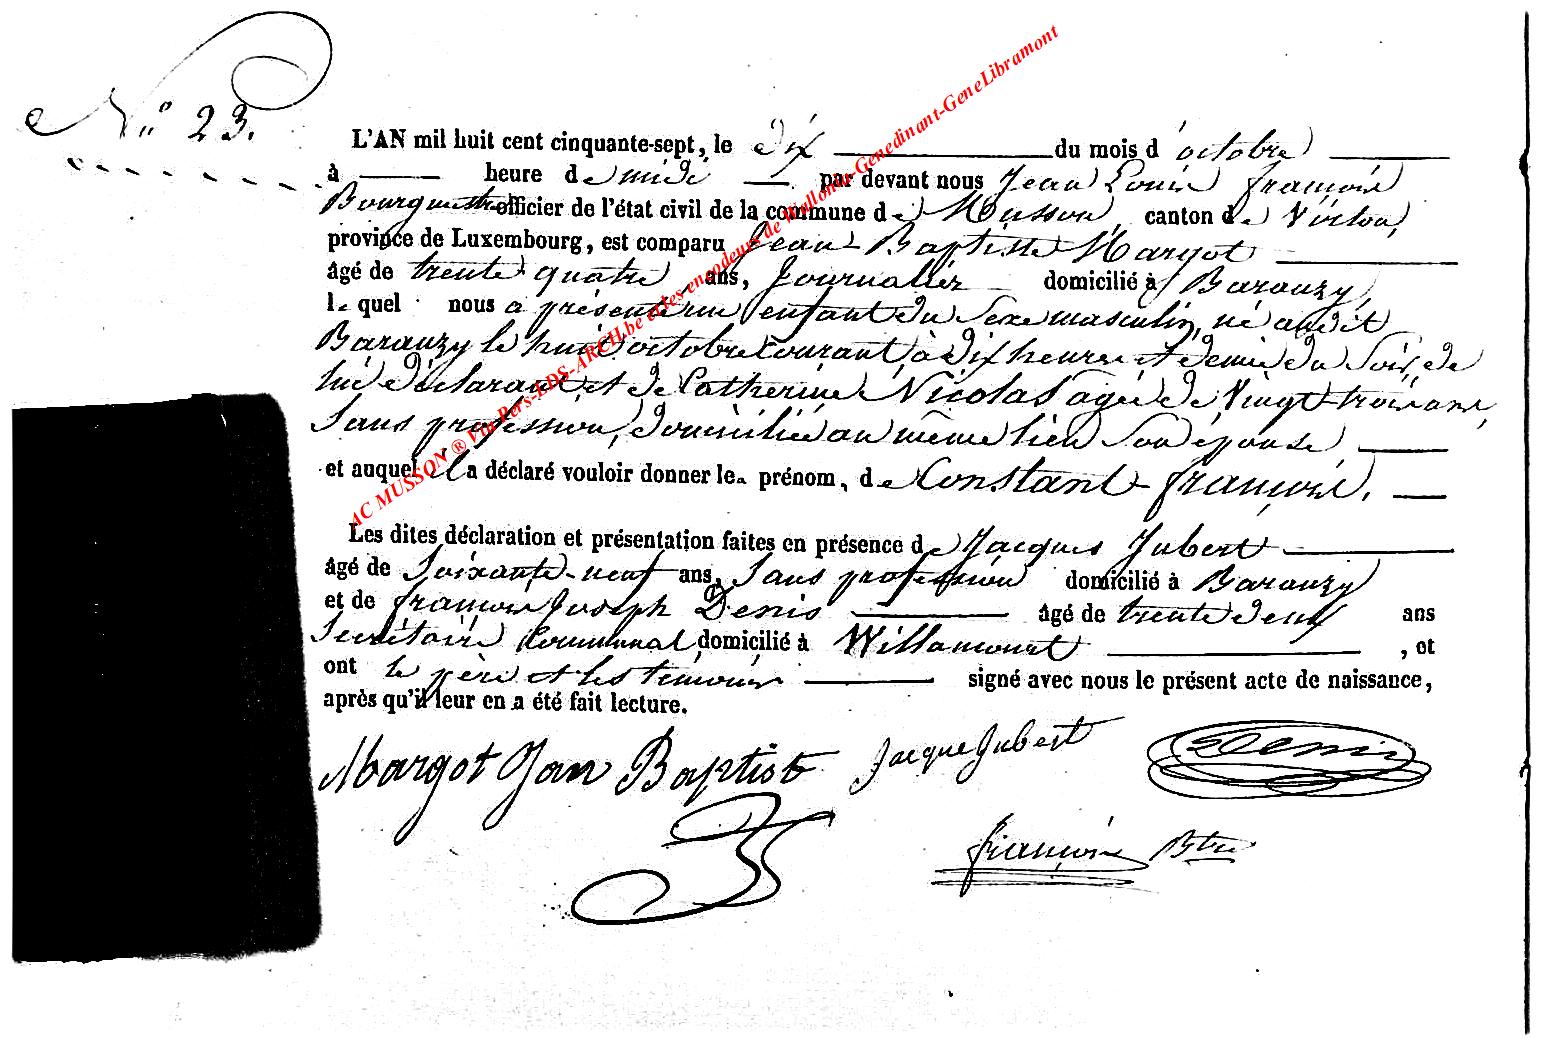 N° 23.
L'AN mil huit cent cinquante-sept, le dix du mois d'octobre
à heure de midi par devant nous Jean Louis françois
Bourguestre officier de l'état civil de la commune de Musson, canton de Virton,
province de Luxembourg, est comparu Jean-Baptiste Margot
âgé de trente-quatre ans, Journalier domicilié à Baranzy,
lequel nous a présenté un enfant du Sexe masculin, né audit
Baranzy le huit octobre courant, à dix heures et demie du Soir, de
lui déclarant et de Catherine Nicolas agée de Vingt-trois ans,
Sans profession, domiciliée au même lieu Son épouse
et auquel il a déclaré vouloir donner les prénoms de Constant-françois.
Les dites déclaration et présentation faites en présence de Jacques Jubert
âgé de Soixante-neuf ans, Sans profession domicilié à Baranzy
et de françois Joseph Denis âgé de trente deux ans
Secrétaire Communal, domicilié à Willancourt, et
ont le père et les témoins signé avec nous le présent acte de naissance,
après qu'il leur en a été fait lecture.
Margot Jan Baptist Jacque Jubert Denis
françois Btre
AC MUSSON ® Via Pers-EDS-ARCH.be et les encodeurs de Wallonia-Genedinant-GeneLibramont